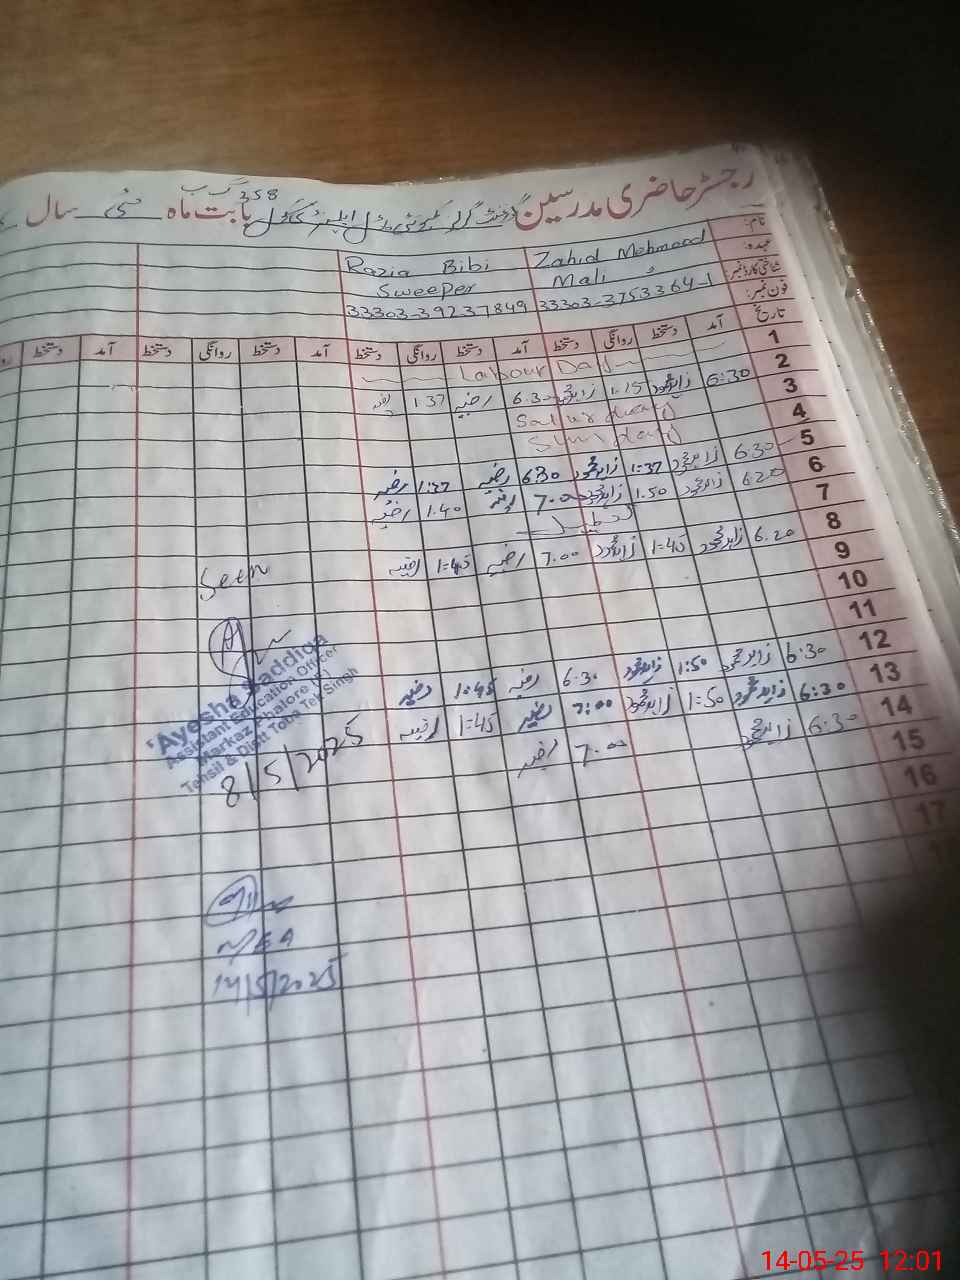 رجسٹر حاضری مدرسین گورنمنٹ گرلز کمیونٹی ماڈل ایلیمنٹری سکول 358 گ ب بابت ماہ مئی سال
نام:
Zahid Mehmood Razia Bibi
عہدہ:
Mali Sweeper
شناختی کارڈ نمبر:
33303-3753364-1 33303-39237849
فون نمبر:
تاریخ آمد دستخط روانگی دستخط آمد دستخط روانگی دستخط آمد دستخط روانگی دستخط آمد دستخط
1 Labour Day
2 6:30 زاہد محمود 1:15 زاہد محمود 6.30 رضیہ 1:37 رضیہ
3 Saturday
4 Sunday
5 6.30 زاہد محمود 1:37 زاہد محمود 6:30 رضیہ 1:37 رضیہ
6 6.20 زاہد محمود 1.50 زاہد محمود 7.00 رضیہ 1.40 رضیہ
7 تعطیل
8 6.20 زاہد محمود 1:45 زاہد محمود 7.00 رضیہ 1:45 رضیہ
9
10
11
12 6.30 زاہد محمود 1:50 زاہد محمود 6.30 رضیہ 1:45 رضیہ
13 6:30 زاہد محمود 1:50 زاہد محمود 7:00 رضیہ 1:45 رضیہ
14 6.30 زاہد محمود 7.00 رضیہ
15
16
17
Seen
Ayesha Saddiqa
Assistant Education Officer
Markaz
Tehsil & Distt Toba Tek Singh
8/5/2025
14/5/2025
14-05-25 12:01